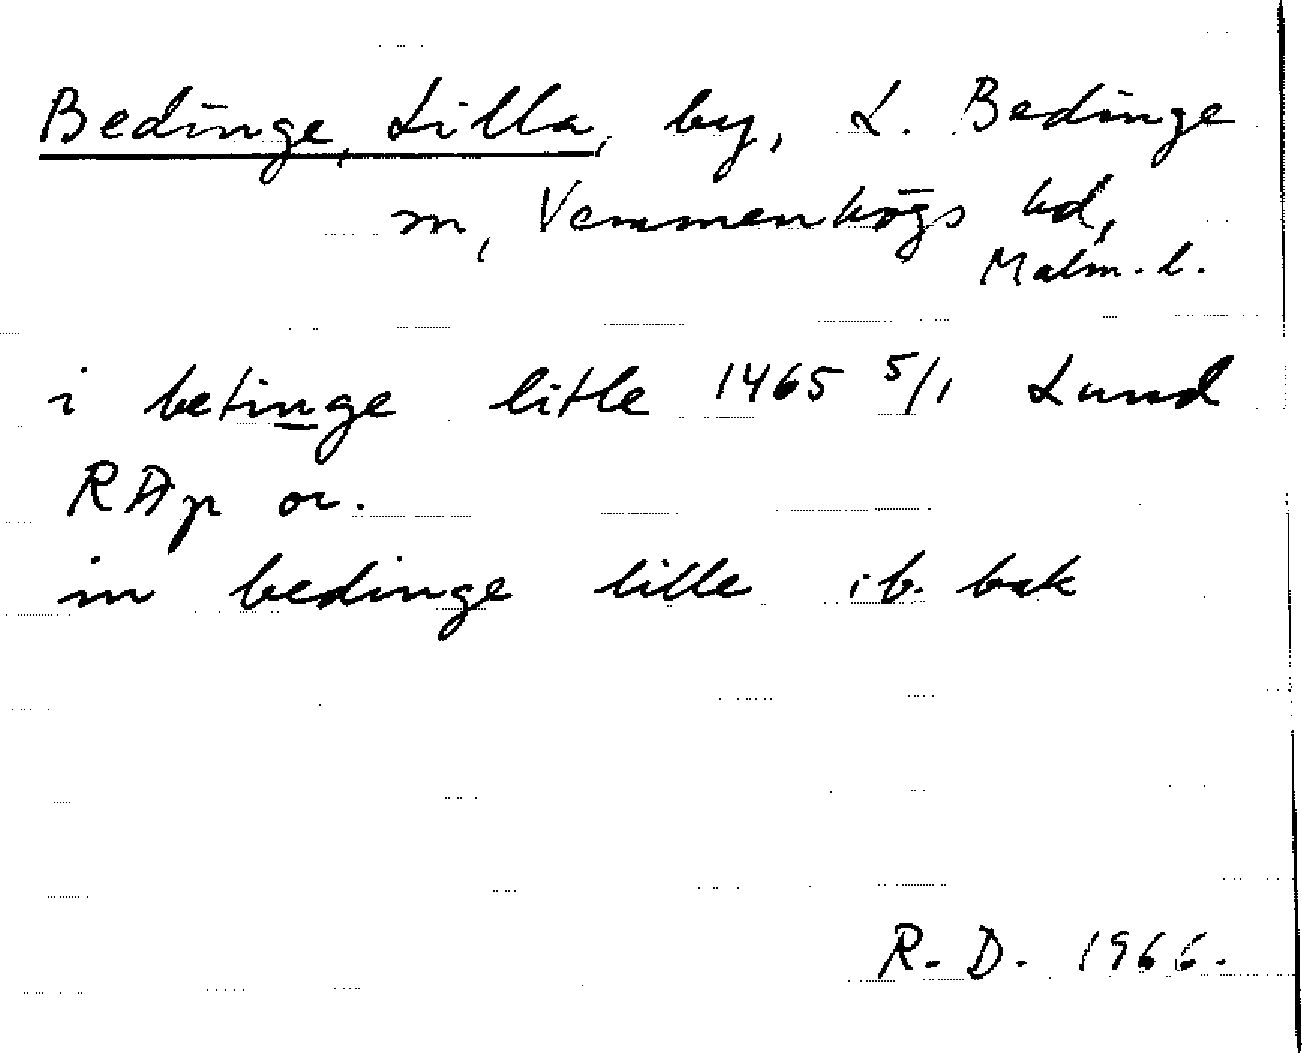 Bedinge, Lilla, by, L. Bedinge
sn, Vemmenhögs hd,
Malm. l.
i betinge litle 1465 5/1 Lund
RAp or.
in bedinge lille ib. bak
R. D. 1966.